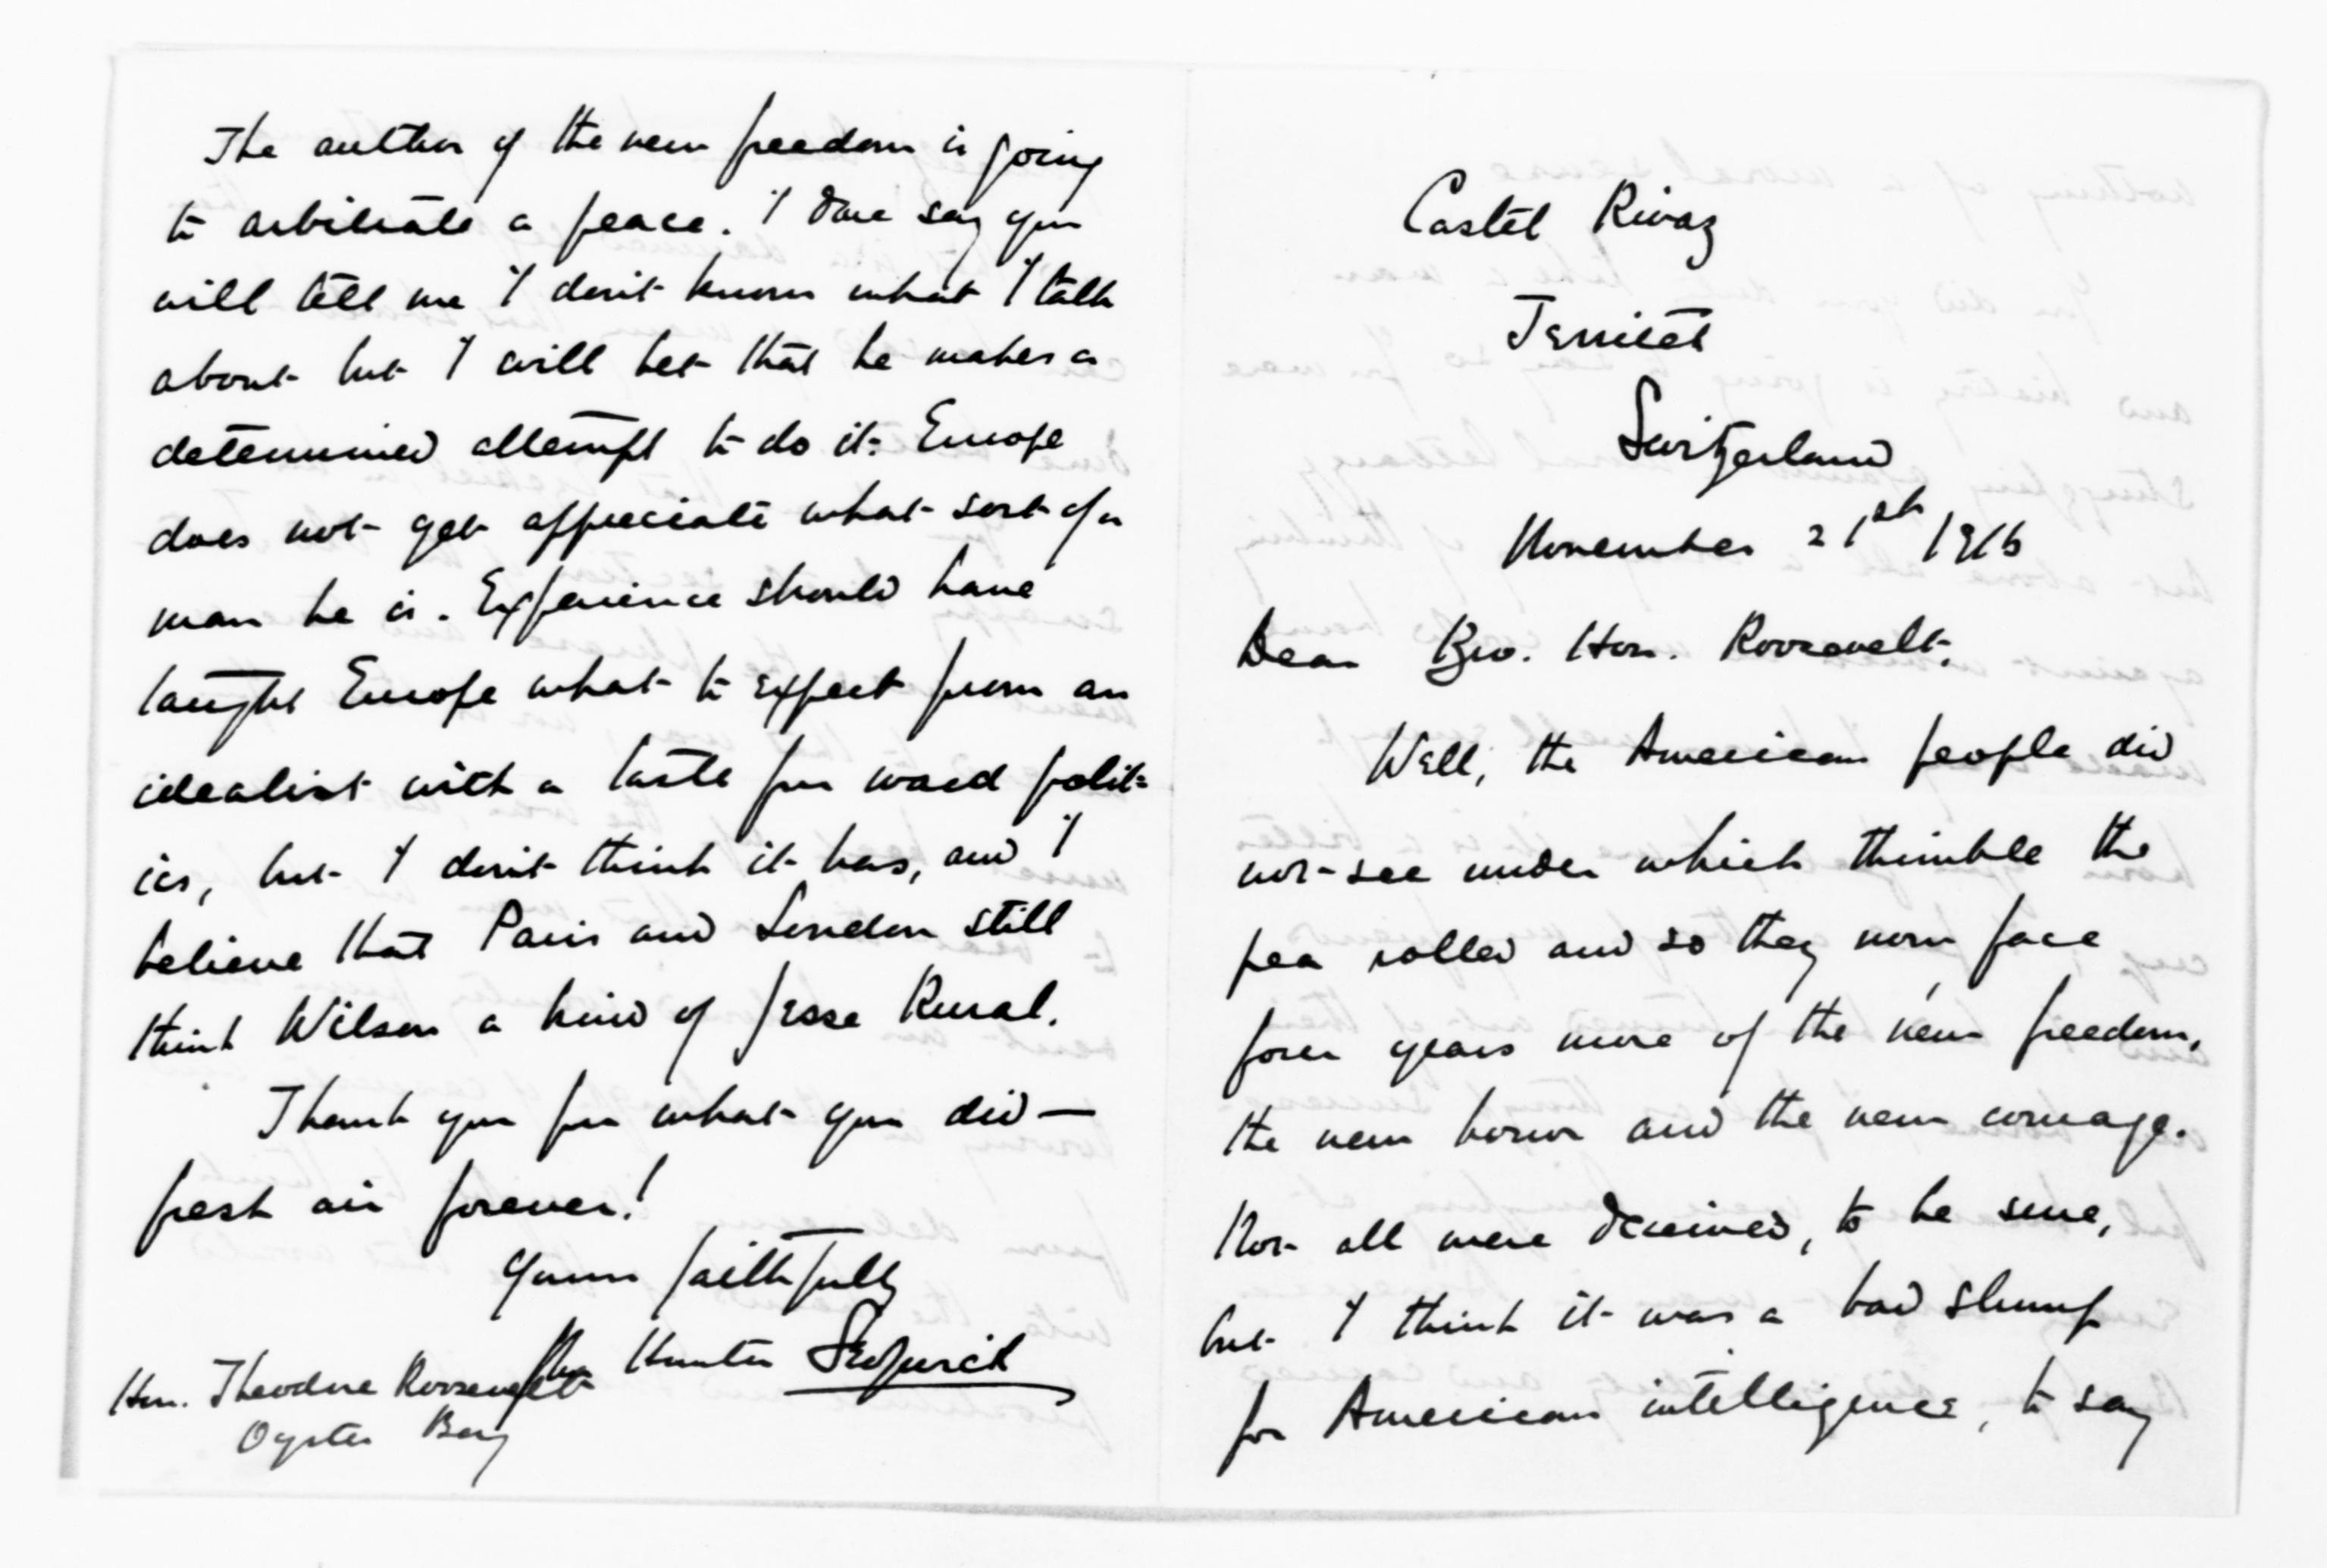 Castel Rivaz
Territet
Switzerland
November 21st 1916
Dear Bro. Hon. Roosevelt,
Well, the American people did
not see under which thimble the
pea rolled and so they now face
four years more of the new freedom,
the new honor and the new courage.
Not all were deceived, to be sure,
but I think it was a bad slump
for American intelligence, to say
The author of the new freedom is going
to arbitrate a peace. I dare say you
will tell me I don't know what I talk
about but I will bet that he makes a
determined attempt to do it. Europe
does not yet appreciate what sort of a
man he is. Experience should have
taught Europe what to expect from an
idealist with a taste for ward polit=
ics, but I don't think it has, and I
believe that Paris and London still
think Wilson a kind of Jesse Rural.
Thank you for what you did —
fresh air forever!
Yours faithfully
Hunter Sedgwick
Hon. Theodore Roosevelt
Oyster Bay